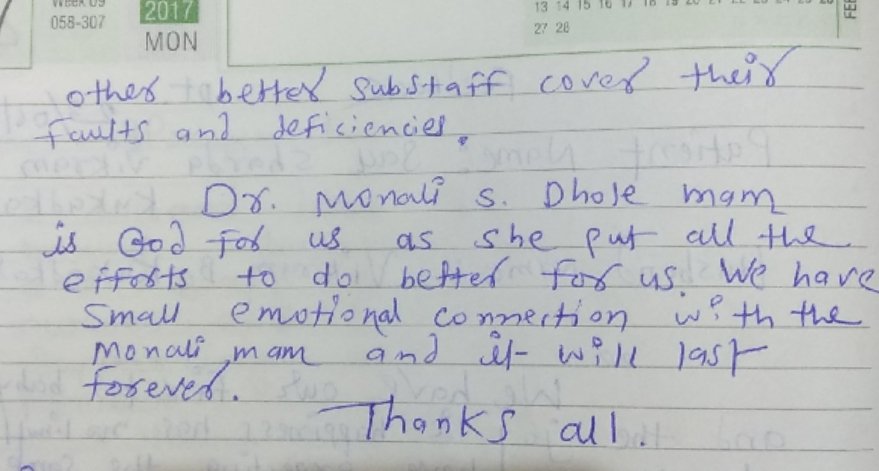 WEEK 09
058-307
2017
MON
13 14 15 16 17 18 19 20 21 22 23 24 25 26
27 28
FEB
other better substaff cover their
faults and deficiencies.
Dr. Monali S. Dhole mam
is God for us as she put all the
efforts to do better for us. We have
small emotional connection with the
Monali mam and it will last
forever.
Thanks all.